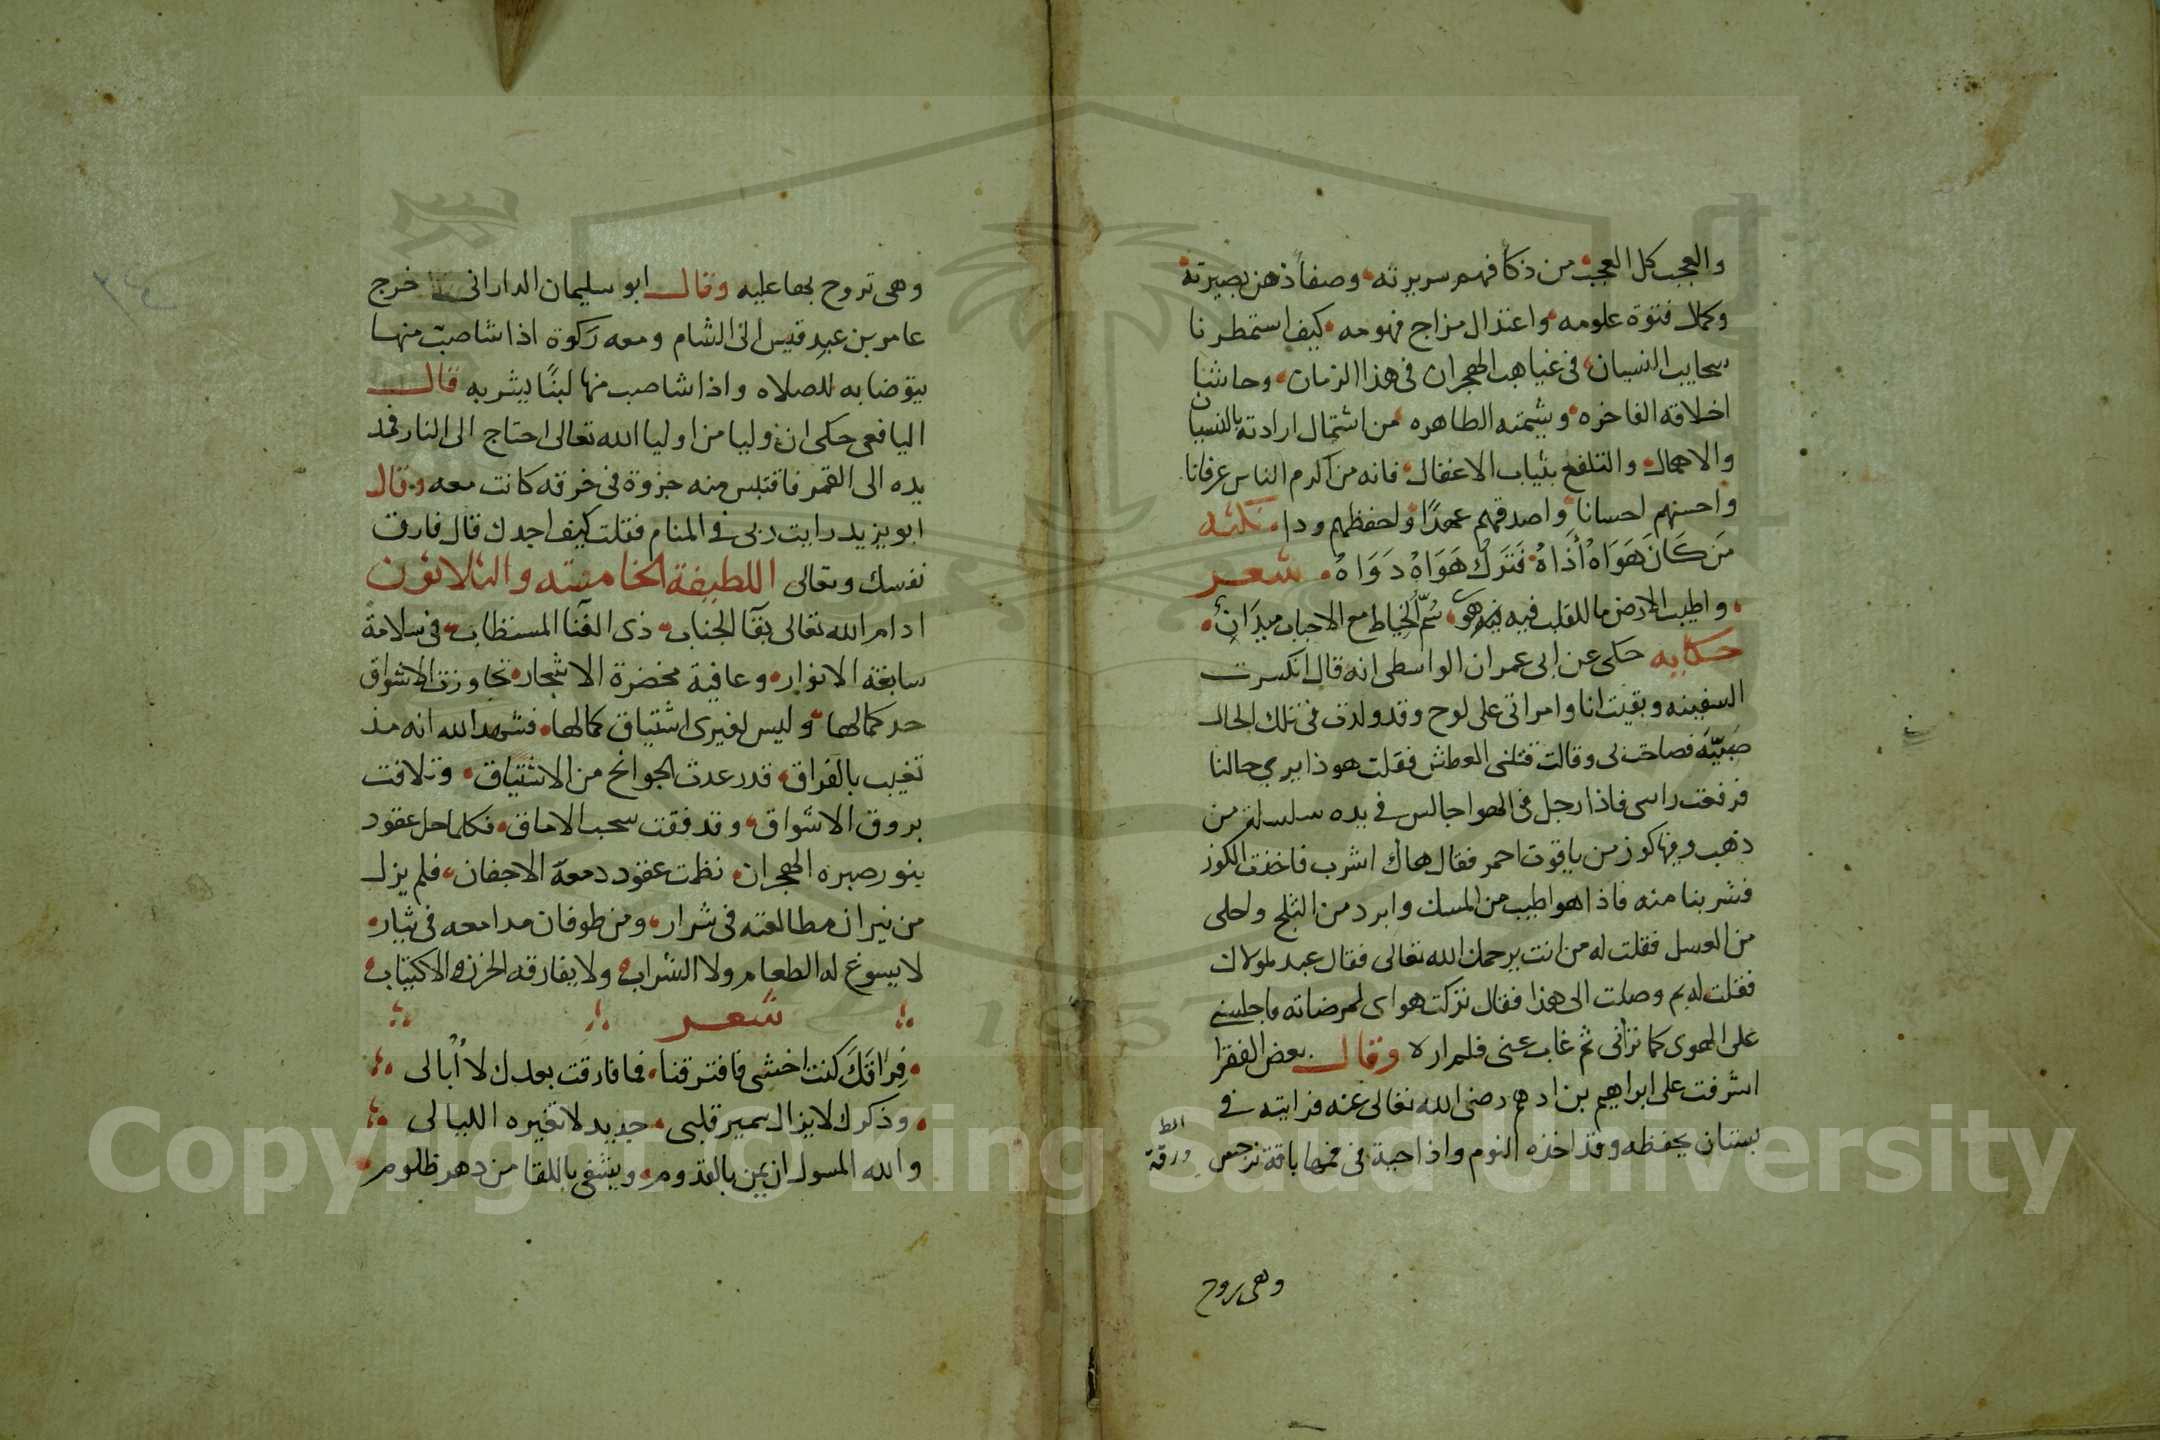 والعجب كل العجب من ذكا فهم سريرته وصفا ذهن بصيرته
وكمال فتوة علومه واعتدال مزاج فهومه كيف استمطرنا
سحايب النسيان في غياهب الهجران في هذا الزمان وحاشنا
اخلاقه الفاخره وشيمته الطاهره من اشتمال ارادته بالنسيان
والاهمال والتلفع بثياب الاغفال فانه من اكرم الناس عرفانا
واحسنهم احسانا واصدقهم عهدًا ولحفظهم ودا نكته
مَن كَانَ هَوَاهُ أَذَاهُ فَتَركُ هَوَاهُ دَوَاهُ شعر
واطيب الارض ما للقلب فيه هوى سُمّ الخياط مع الاحباب ميدَان
حكايه حكى عن ابى عمران الواسطى انه قال انكسرت
السفينه وبقيت انا وامراتى على لوح وقد ولدت فى تلك الحال
صَبيّة فصاحت لى وقالت قتلنى العطش فقلت هوذا يرى حالنا
فرفعت راسى فاذا رجل فى الهوا جالس في يده سلسلة من
ذهب وفيها كوز من ياقوت احمر فقال هاك اشرب فاخذت الكوز
فشربنا منه فاذا هو اطيب من المسك وابرد من الثلج واحلى
من العسل فقلت له من انت يرحمك الله تعالى فقال عبد لمولاك
فقلت له بم وصلت الى هذا فقال تركت هواى لمرضاته فاجلسنى
على الهوى كما ترانى ثم غاب عنى فلم اره وقال بعض الفقرا
اشرفت على ابراهيم بن ادهم رضى الله تعالى عنه فرايته في
بستان يحفظه وقد اخذه النوم واذا حية فى فمها باقة نرجس
ورقة
وهى تروح
وهى تروح بها عليه وقال ابو سليمان الدارانى خرج
عامر بن عبد قيس الى الشام ومعه ركوة اذا شا صبت منها
يتوضا به للصلاه واذا شا صب منها لبنًا يشربه قال
اليافعى حكى ان وليا من اوليا الله تعالى احتاج الى النار فمد
يده الى القمر فاقتبس منه جزوة فى خرقه كانت معه وقال
ابو يزيد رايت ربى في المنام فقلت كيف اجدك قال فارق
نفسك وتعالى اللطيفة الخامسته والثلاثون
ادام الله تعالى بقآ الجناب ذى الفنا المستطاب فى سلامة
سابغة الانوار وعافية مخضرة الاشجار تجاوزت الاشواق
حد كمالها وليس لغيرى اشتياق كمالها فشهد الله انه مذ
تغيب بالفراق قد رعدت الجوانح من الاشتياق وتلاقت
بروق الاشواق وقد فقت سحب الاماق فكلما حل عقود
بنور صبره الهجران نظمت عقود دمعة الاجفان فلم يزل
من نيران مطالعته فى شرار ومن طوفان مدامعه فى تيار
لا يسوغ له الطعام ولا الشراب ولا يفارقه الحزن والاكتياب
شعر
فِراقَكَ كنت اخشى فافترقنا فما فارقت بعدك لا أُبالى
وذكرك لا يزال سمير قلبى جديد لا تغيره الليالى
والله المسول ان يمن بالقدوم ويشفى باللقا من دهر ظلوم
Copyright © King Saud University
1957